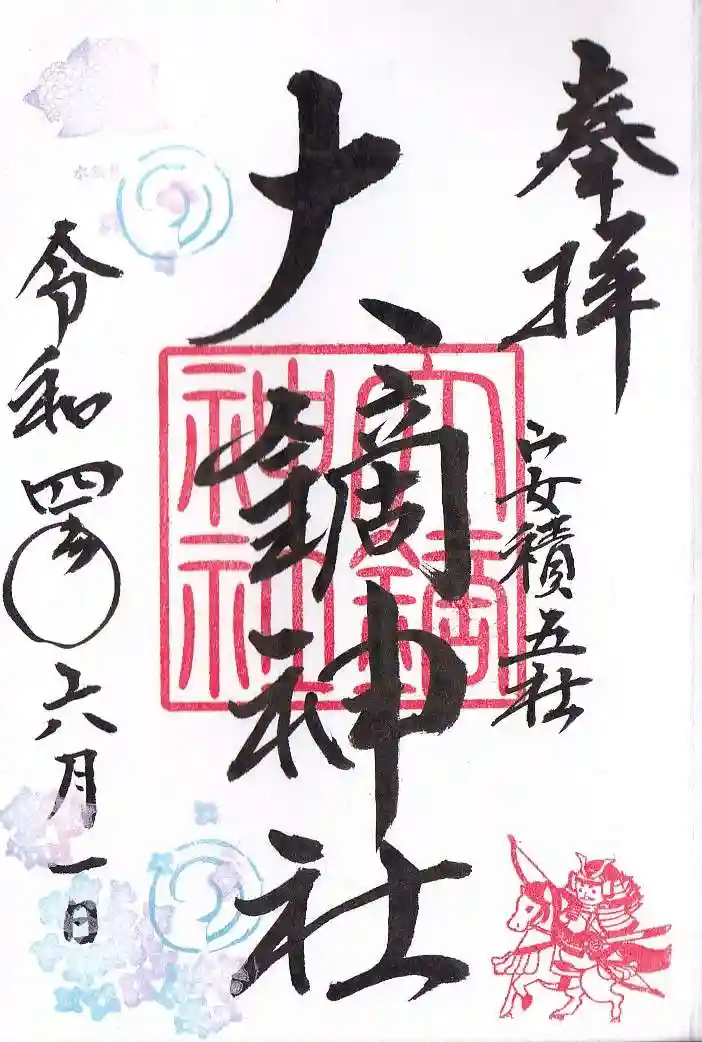 奉拝
安積五社
大鏑神社
大鏑神社
令和四年六月一日